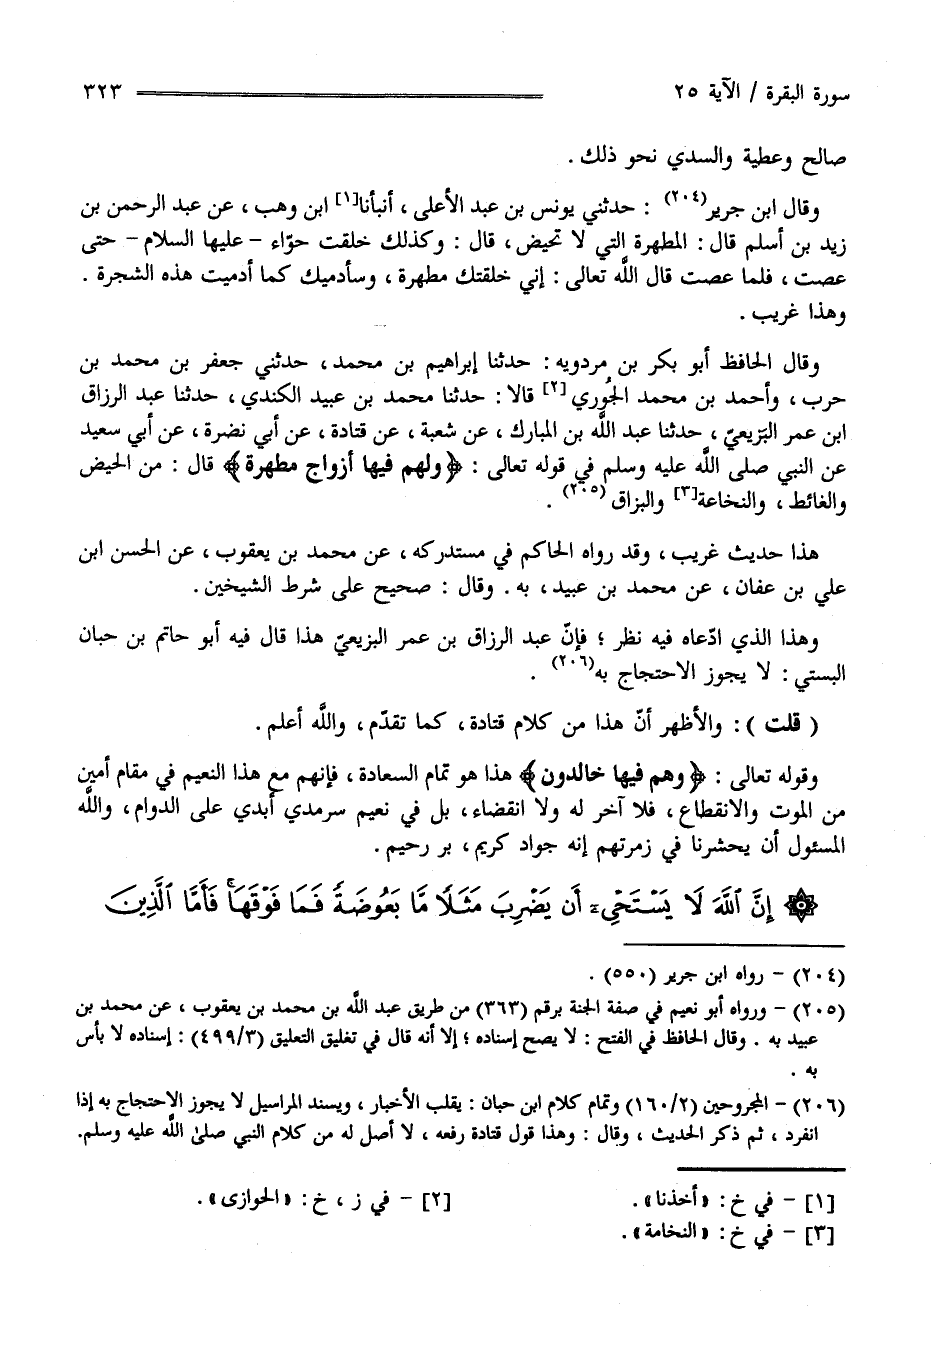 سورة البقرة / الآية ٢٥ ٣٢٣
صالح وعطية والسدي نحو ذلك .
وقال ابن جرير(٢٠٤) : حدثني يونس بن عبد الأعلى ، أنبأنا[١] ابن وهب ، عن عبد الرحمن بن
زيد بن أسلم قال : المطهرة التي لا تحيض ، قال : وكذلك خلقت حوّاء – عليها السلام – حتى
عصت ، فلما عصت قال اللَّه تعالى : إني خلقتك مطهرة ، وسأدميك كما أدميت هذه الشجرة .
وهذا غريب .
وقال الحافظ أبو بكر بن مردويه : حدثنا إبراهيم بن محمد ، حدثني جعفر بن محمد بن
حرب ، وأحمد بن محمد الجُوري[٢] قالا : حدثنا محمد بن عبيد الكندي ، حدثنا عبد الرزاق
ابن عمر البَزيعيّ ، حدثنا عبد اللَّه بن المبارك ، عن شعبة ، عن قتادة ، عن أبي نضرة ، عن أبي سعيد
عن النبي صلى اللَّه عليه وسلم في قوله تعالى : ﴿ولهم فيها أزواج مطهرة﴾ قال : من الحيض
والغائط ، والنخاعة[٣] والبزاق(٢٠٥) .
هذا حديث غريب ، وقد رواه الحاكم في مستدركه ، عن محمد بن يعقوب ، عن الحسن ابن
علي بن عفان ، عن محمد بن عبيد ، به . وقال : صحيح على شرط الشيخين .
وهذا الذي ادّعاه فيه نظر ؛ فإنّ عبد الرزاق بن عمر البزيعيّ هذا قال فيه أبو حاتم بن حبان
البستي : لا يجوز الاحتجاج به(٢٠٦) .
( قلت ) : والأظهر أنّ هذا من كلام قتادة ، كما تقدّم ، واللَّه أعلم .
وقوله تعالى : ﴿وهم فيها خالدون﴾ هذا هو تمام السعادة ، فإنهم مع هذا النعيم في مقام أمين
من الموت والانقطاع ، فلا آخر له ولا انقضاء ، بل في نعيم سرمدي أبدي على الدوام ، واللَّه
المسئول أن يحشرنا في زمرتهم إنه جواد كريم ، بر رحيم .
۞ إِنَّ ٱللَّهَ لَا يَسْتَحْىِۦٓ أَن يَضْرِبَ مَثَلًا مَّا بَعُوضَةً فَمَا فَوْقَهَا ۚ فَأَمَّا ٱلَّذِينَ
(٢٠٤) – رواه ابن جرير (٥٥٠) .
(٢٠٥) – ورواه أبو نعيم في صفة الجنة برقم (٣٦٣) من طريق عبد اللَّه بن محمد بن يعقوب ، عن محمد بن
عبيد به . وقال الحافظ في الفتح : لا يصح إسناده ؛ إلا أنه قال في تغليق التعليق (٤٩٩/٣) : إسناده لا بأس
به .
(٢٠٦) – المجروحين (١٦٠/٢) وتمام كلام ابن حبان : يقلب الأخبار ، ويسند المراسيل لا يجوز الاحتجاج به إذا
انفرد ، ثم ذكر الحديث ، وقال : وهذا قول قتادة رفعه ، لا أصل له من كلام النبي صلى اللَّه عليه وسلم.
[١] – في خ : «أخذنا» . [٢] – في ز ، خ : «الحوازى» .
[٣] – في خ : «النخامة» .